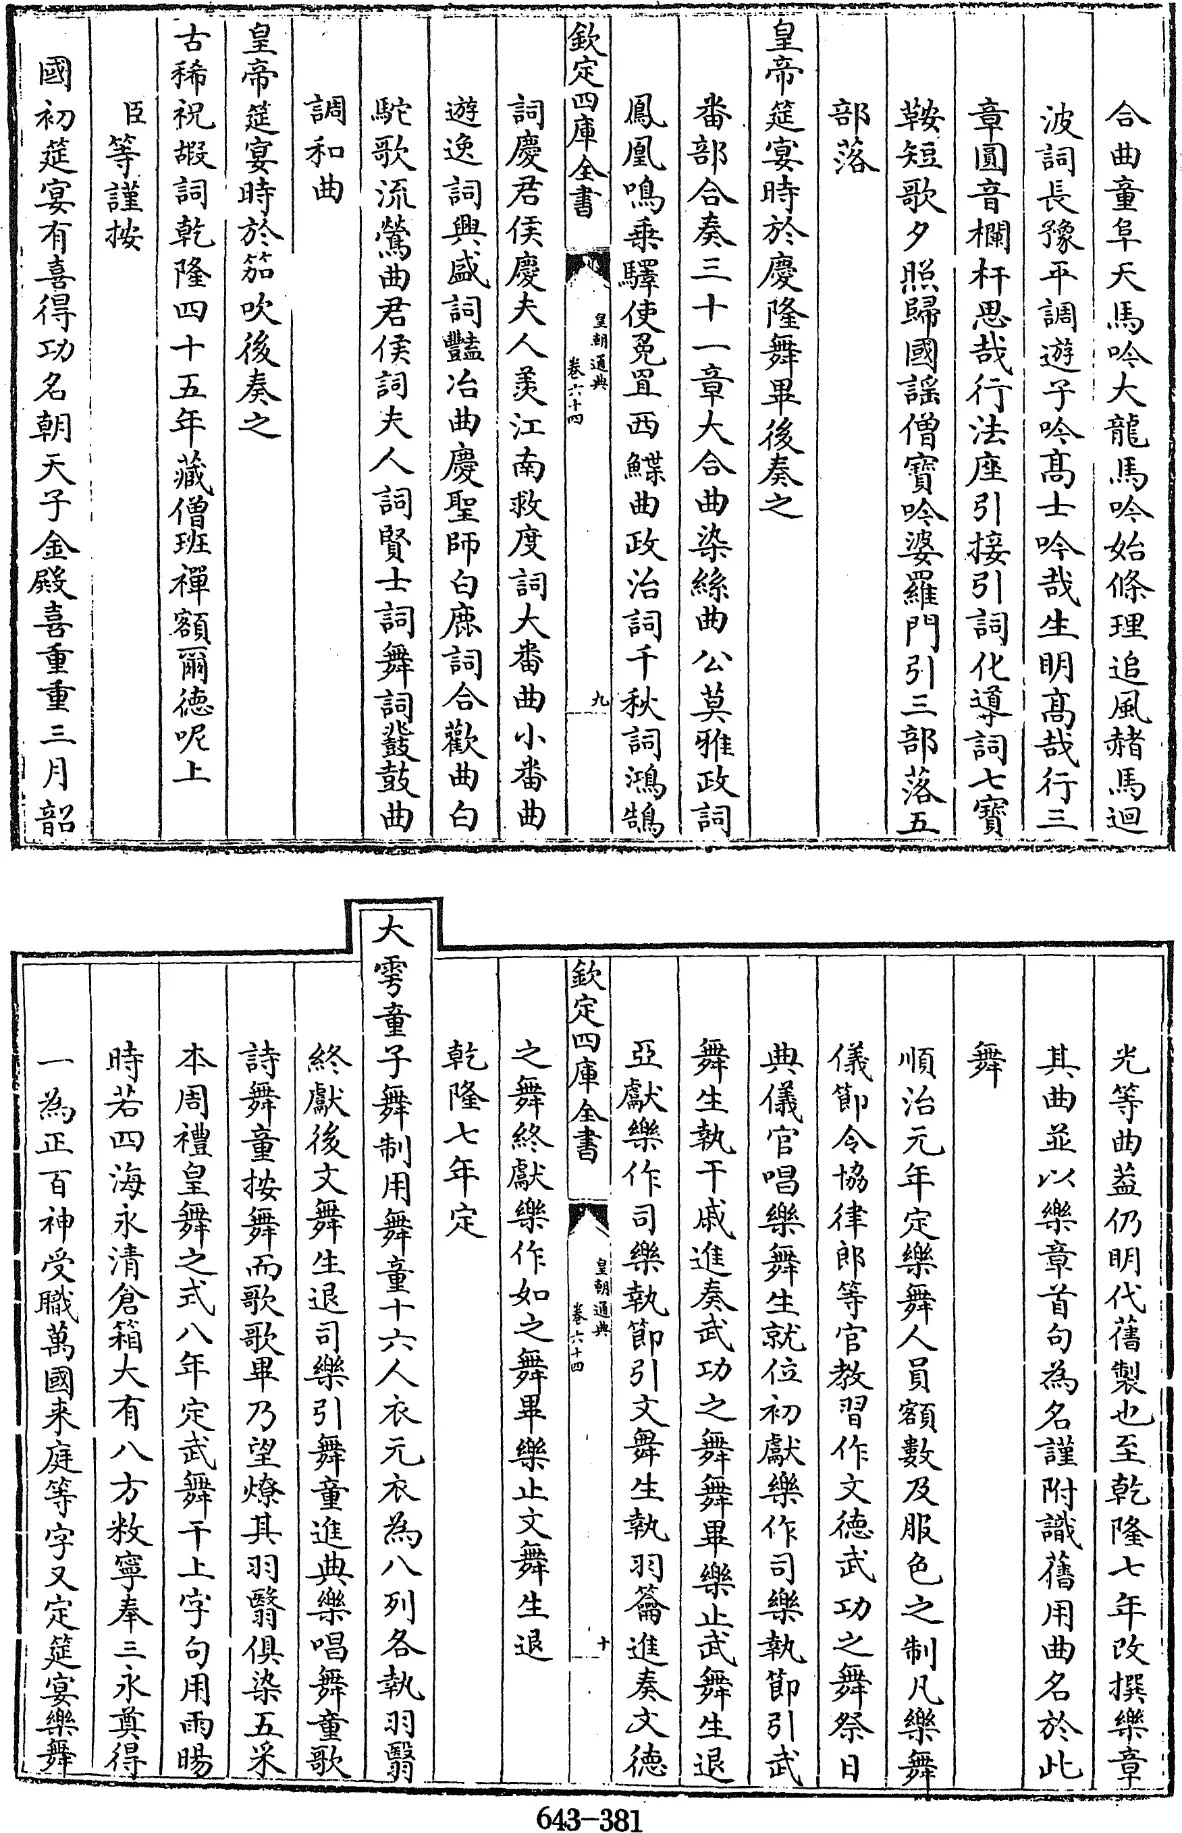 合曲童阜天馬吟大龍馬吟始條理追風赭馬迴
波詞長豫平調遊子吟高士吟哉生明高哉行三
章圓音欄杆思哉行法座引接引詞化導詞七寶
鞍短歌夕照歸國謡僧寶吟婆羅門引三部落五
部落
皇帝筵宴時於慶隆舞畢後奏之
番部合奏三十一章大合曲染絲曲公莫雅政詞
鳳凰鳴乗驛使兎罝西鰈曲政治詞千秋詞鴻鵠
欽定四庫全書
皇朝通典
卷六十四
九
詞慶君侯慶夫人羨江南救度詞大番曲小番曲
遊逸詞興盛詞豔冶曲慶聖師白鹿詞合歡曲白
駝歌流鶯曲君侯詞夫人詞賢士詞舞詞鼗鼓曲
調和曲
皇帝筵宴時於笳吹後奏之
古稀祝嘏詞乾隆四十五年藏僧班禪額爾德呢上
臣等謹按
國初筵宴有喜得功名朝天子金殿喜重重三月韶
光等曲葢仍明代舊製也至乾隆七年改撰樂章
其曲並以樂章首句為名謹附識舊用曲名於此
舞
順治元年定樂舞人員額數及服色之制凡樂舞
儀節令協律郎等官教習作文德武功之舞祭日
典儀官唱樂舞生就位初獻樂作司樂執節引武
舞生執干戚進奏武功之舞舞畢樂止武舞生退
亞獻樂作司樂執節引文舞生執羽籥進奏文德
欽定四庫全書
皇朝通典
卷六十四
十
之舞終獻樂作如之舞畢樂止文舞生退
乾隆七年定
大雩童子舞制用舞童十六人衣元衣為八列各執羽翳
終獻後文舞生退司樂引舞童進典樂唱舞童歌
詩舞童按舞而歌歌畢乃望燎其羽翳俱染五采
本周禮皇舞之式八年定武舞干上字句用雨暘
時若四海永清倉箱大有八方敉寧奉三永奠得
一為正百神受職萬國来庭等字又定筵宴樂舞
643-381